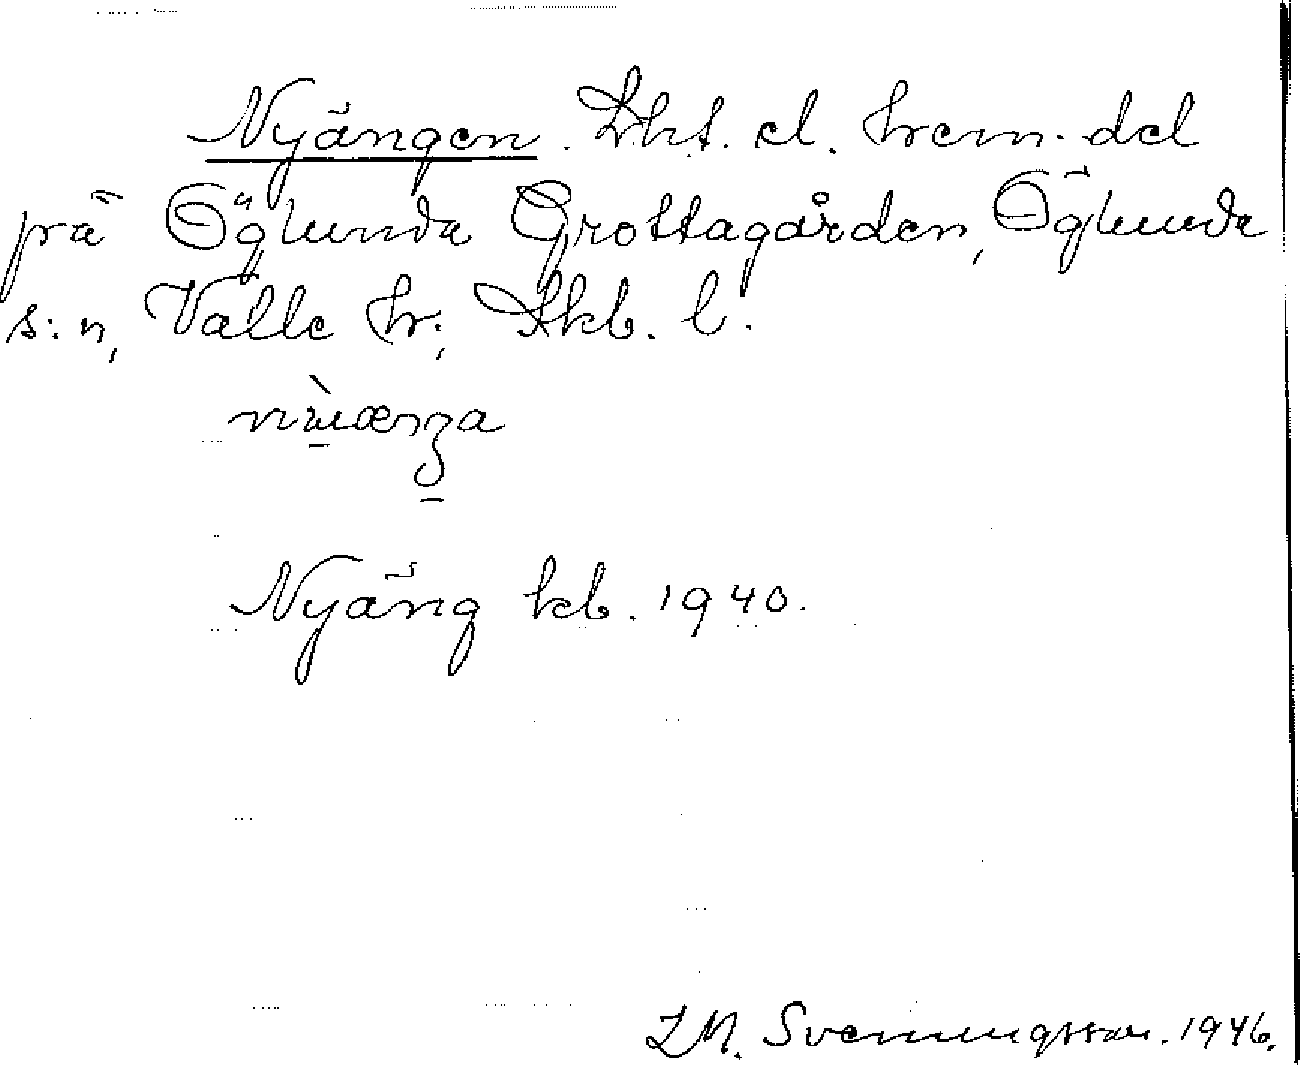 Nyängen. Lht. el. hem. del
på Öglunda Grottagården, Öglunda
s:n, Valle hr; Skb. l.
Nyäng kb. 1940.
Svenningsson. 1946.